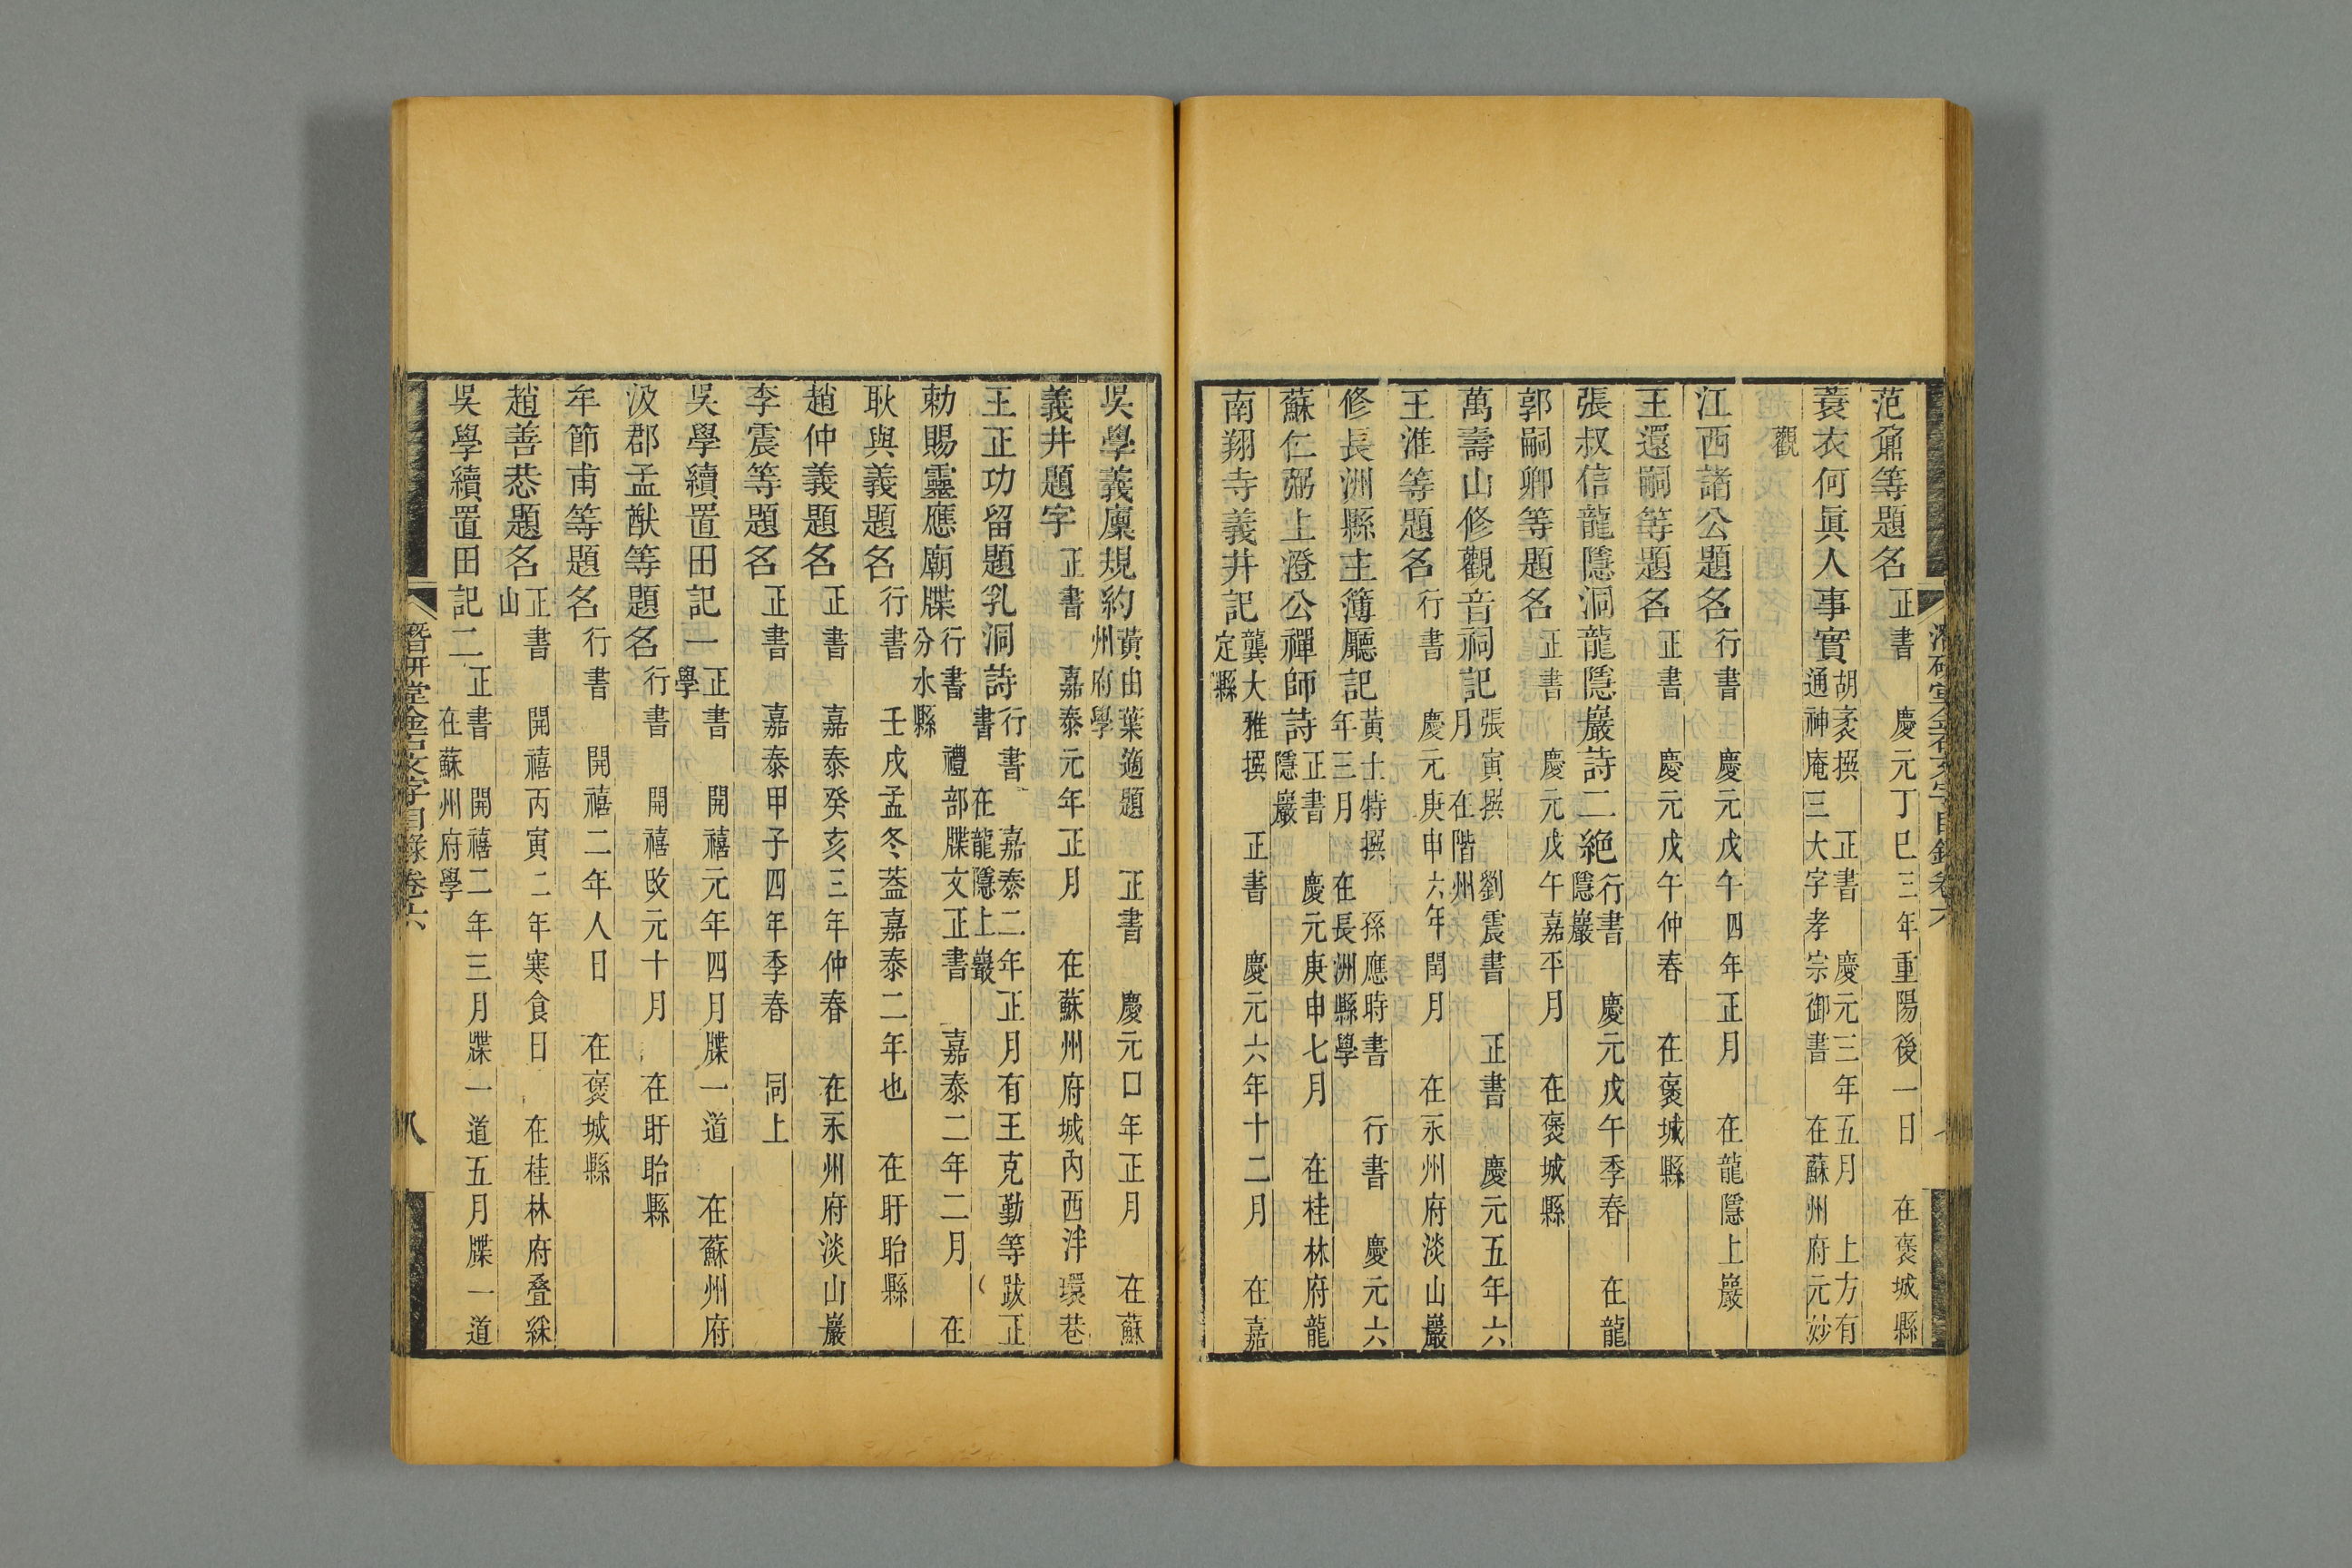 范鼐等題名 正書 慶元丁巳三年重陽後一日 在褒城縣
蓑衣何真人事實 胡袤撰 正書 慶元三年五月 上方有
通神庵三大字孝宗御書 在蘇州府元妙
觀
江西諸公題名 行書 慶元戊午四年正月 在龍隱上巖
王還嗣等題名 正書 慶元戊午仲春 在褒城縣
張叔信龍隱洞龍隱巖詩二絕 行書 慶元戊午季春 在龍
隱巖
郭嗣卿等題名 正書 慶元戊午嘉平月 在褒城縣
萬壽山修觀音祠記 張寅撰 劉震書 正書 慶元五年六
月 在階州
王淮等題名 行書 慶元庚申六年閏月 在永州府淡山巖
修長洲縣主簿廳記 黃士特撰 孫應時書 行書 慶元六
年三月 在長洲縣學
蘇仁弼上澄公禪師詩 正書 慶元庚申七月 在桂林府龍
隱巖
南翔寺義井記 龔大雅撰 正書 慶元六年十二月 在嘉
定縣
吳學義廩規約 黃由葉適題 正書 慶元口年正月 在蘇
州府學
義井題字 正書 嘉泰元年正月 在蘇州府城內西泮環巷
王正功留題乳洞詩 行書 嘉泰二年正月有王克勤等跋正
書 在龍隱上巖
勅賜靈應廟牒 行書 禮部牒文正書 嘉泰二年二月 在
分水縣
耿與義題名 行書 壬戌孟冬葢嘉泰二年也 在盱眙縣
趙仲義題名 正書 嘉泰癸亥三年仲春 在永州府淡山巖
李震等題名 正書 嘉泰甲子四年季春 同上
吳學續置田記一 正書 開禧元年四月牒一道 在蘇州府
學
汲郡孟猷等題名 行書 開禧改元十月 在盱眙縣
牟節甫等題名 行書 開禧二年人日 在褒城縣
趙善恭題名 正書 開禧丙寅二年寒食日 在桂林府疊綵
山
吳學續置田記二 正書 開禧二年三月牒一道五月牒一道
在蘇州府學
潛研堂金石文字目錄卷六
八